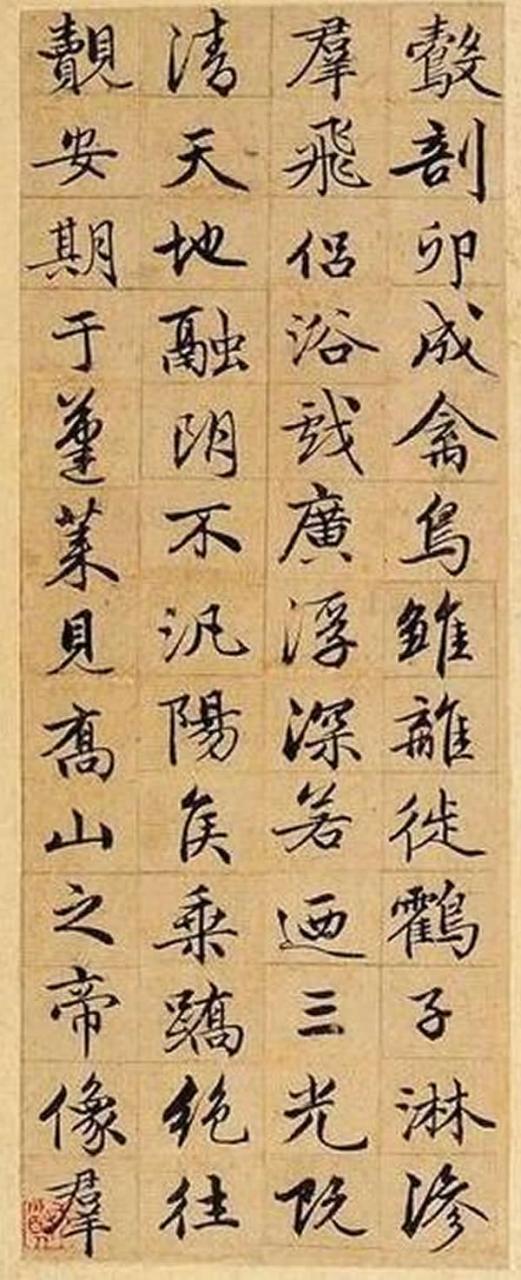 鷇剖卵成禽鳧雛離徙鸖子淋滲
羣飛侶浴戲廣浮深若迺三光既
清天地融朗不汎陽侯乘蹻絕往
覿安期于蓬萊見喬山之帝像羣